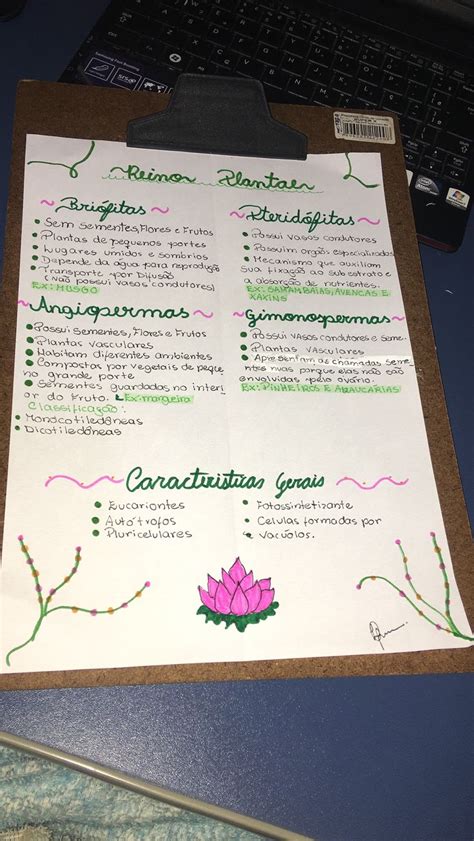 Reinos Plantaes
Briófitas
Sem sementes, Flores e Frutos
Plantas de pequenos portes
Lugares umidos e sombrios
Depende da água para reprodução
Transporte por Difusão
(Não possui vasos condutores).
Ex: MUSGO
Pteridófitas
Possui vasos condutores
Possuim orgãos especializados
Mecanismo que auxiliam
sua fixação ao sub estrato e
a absorção de nutrientes.
Ex: SAMAMBAIAS, AVENCAS E
XAXINS
Angiospermas
Possui Sementes, Flores e Frutos
Plantas vasculares
Habitam diferentes ambientes
Compostas por vegetais de peque
no grande porte
Sementes guardadas no interi
or do Fruto. Ex: mangueira
Classificação:
Monocotiledôneas
Dicotiledôneas
Gimonospermas
Possui vasos condutores e Seme
Plantas vasculares
Apresentam as chamadas Seme
ntes nuas porque elas não são
envolvidas pelo ovário.
Ex: PINHEIROS E ARAUCÁRIAS
Caracteristicas Gerais
Eucariontes
Autótrofos
Pluricelulares
Fotossintetizante
Celulas formadas por
vacúolos.